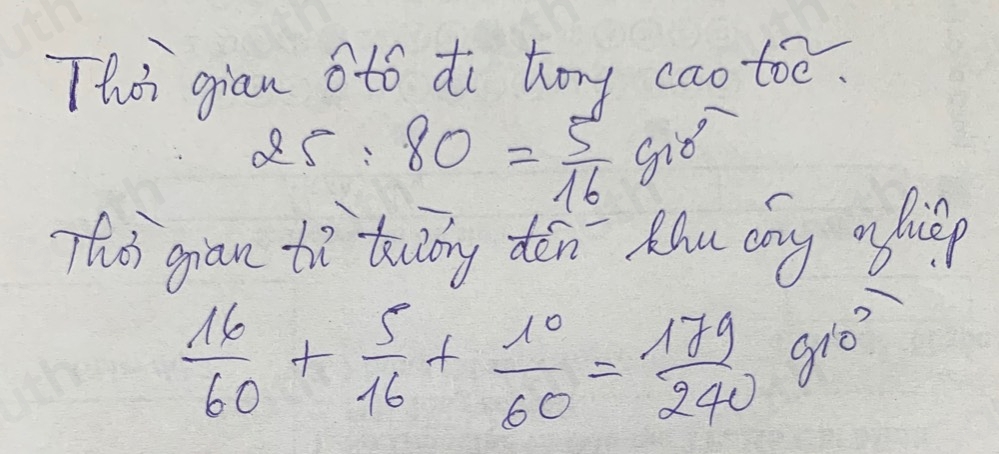 Thời gian ôtô đi trong cao tốc.
25 : 80 = 5/16 giờ
Thời gian từ trường đến khu công nghiệp
16/60 + 5/16 + 10/60 = 179/240 giờ